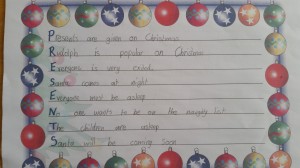 Presents are given on Christmas
Rudolph is popular on Christmas
Everyone is very excited.
Santa comes at night
Everyone must be asleep
No one wants to be on the naughty list
The children are asleep
Santa will be coming soon